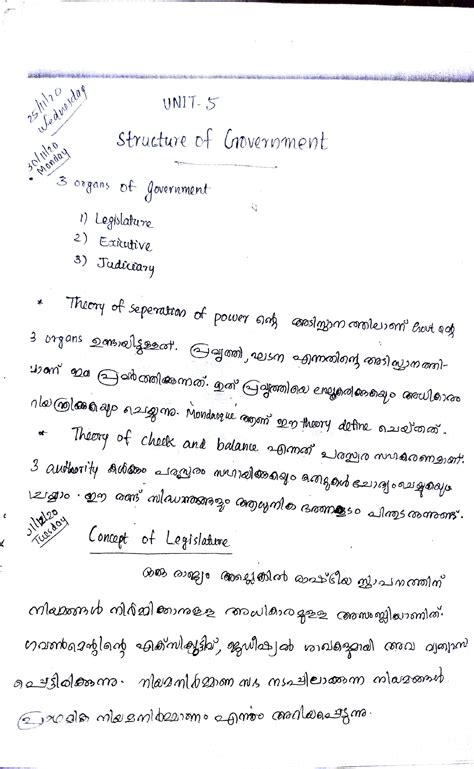 25/11/20
Wednesday
UNIT-5
30/11/20
Monday
Structure of Government
• 3 organs of government
1) Legislature
2) Exicutive
3) Judiciary
* Theory of seperation of power ന്റെ അടിസ്ഥാനത്തിലാണ് Govt ന്റെ
3 organs ഉണ്ടായിട്ടുള്ളത്. പ്രവൃത്തി, ഘടന എന്നതിന്റെ അടിസ്ഥാനത്തി-
ലാണ് ഇവ പ്രവർത്തിക്കുന്നത്. ഇത് പ്രവൃത്തിയെ ലഘൂകരിക്കുകയും അധികാരം
നിയന്ത്രിക്കുകയും ചെയ്യുന്നു. ആണ് ഈ theory define ചെയ്തത്.
* Theory of check and balance എന്നത് പരസ്പര സഹകരണമാണ്.
3 authority കൾക്കും പരസ്പരം സഹായിക്കുകയും ചോദ്യംചെയ്യുകയും
ചെയ്യാം. ഈ രണ്ട് സിദ്ധാന്തങ്ങളും ആധുനിക ഭരണകൂടം പിന്തുടരുന്നുണ്ട്.
1/12/20
Tuesday
Concept of Legislature
ഒരു രാജ്യം അല്ലെങ്കിൽ രാഷ്ട്രീയ സ്ഥാപനത്തിന്
നിയമങ്ങൾ നിർമ്മിക്കാനുള്ള അധികാരമുള്ള അസംബ്ലിയാണിത്.
ഗവൺമെന്റിന്റെ എക്സിക്യൂട്ടീവ്, ജുഡീഷ്യൽ ശാഖകളുമായി അവ വ്യത്യാസ
പ്പെട്ടിരിക്കുന്നു. നിയമനിർമ്മാണ സഭ നടപ്പിലാക്കുന്ന നിയമങ്ങൾ
പ്രാഥമിക നിയമനിർമ്മാണം എന്നും അറിയപ്പെടുന്നു.